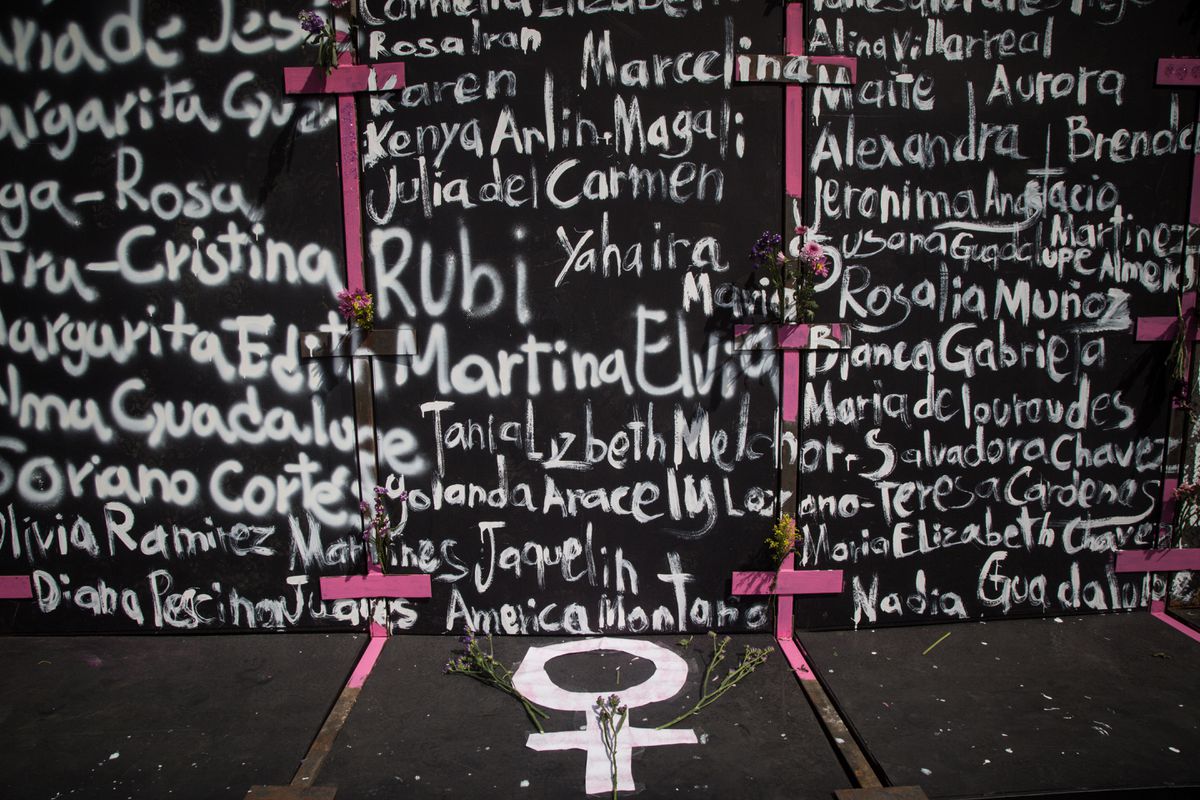 María de Jesú
Margarita Gue
ga-Rosa
Tru-Cristina
Margarita Edith
Alma Guadalupe
Soriano Cortés
Olivia Ramirez Martines
Diana Pescina Juares
Carmelia Elizabeth
Rosa Iran
Marcelina
Karen
Kenya Arlin-Magali
Julia del Carmen
Rubi Yahaira
Maria
Martina Elvia
Tania Lizbeth Melchor-
Yolanda Aracely Lozano-
Jaquelin
America Montaño
Alina Villarreal
Maite Aurora
Alexandra Brenda
Jeronima Anastacio
Susana Guadalupe Martinez
Almeids
Rosalia Muñoz
Bianca Gabriela
Maria de lourdes
Salvadora Chavez
Teresa Cardenas
Maria Elizabeth Chavez
Nadia Guadalup